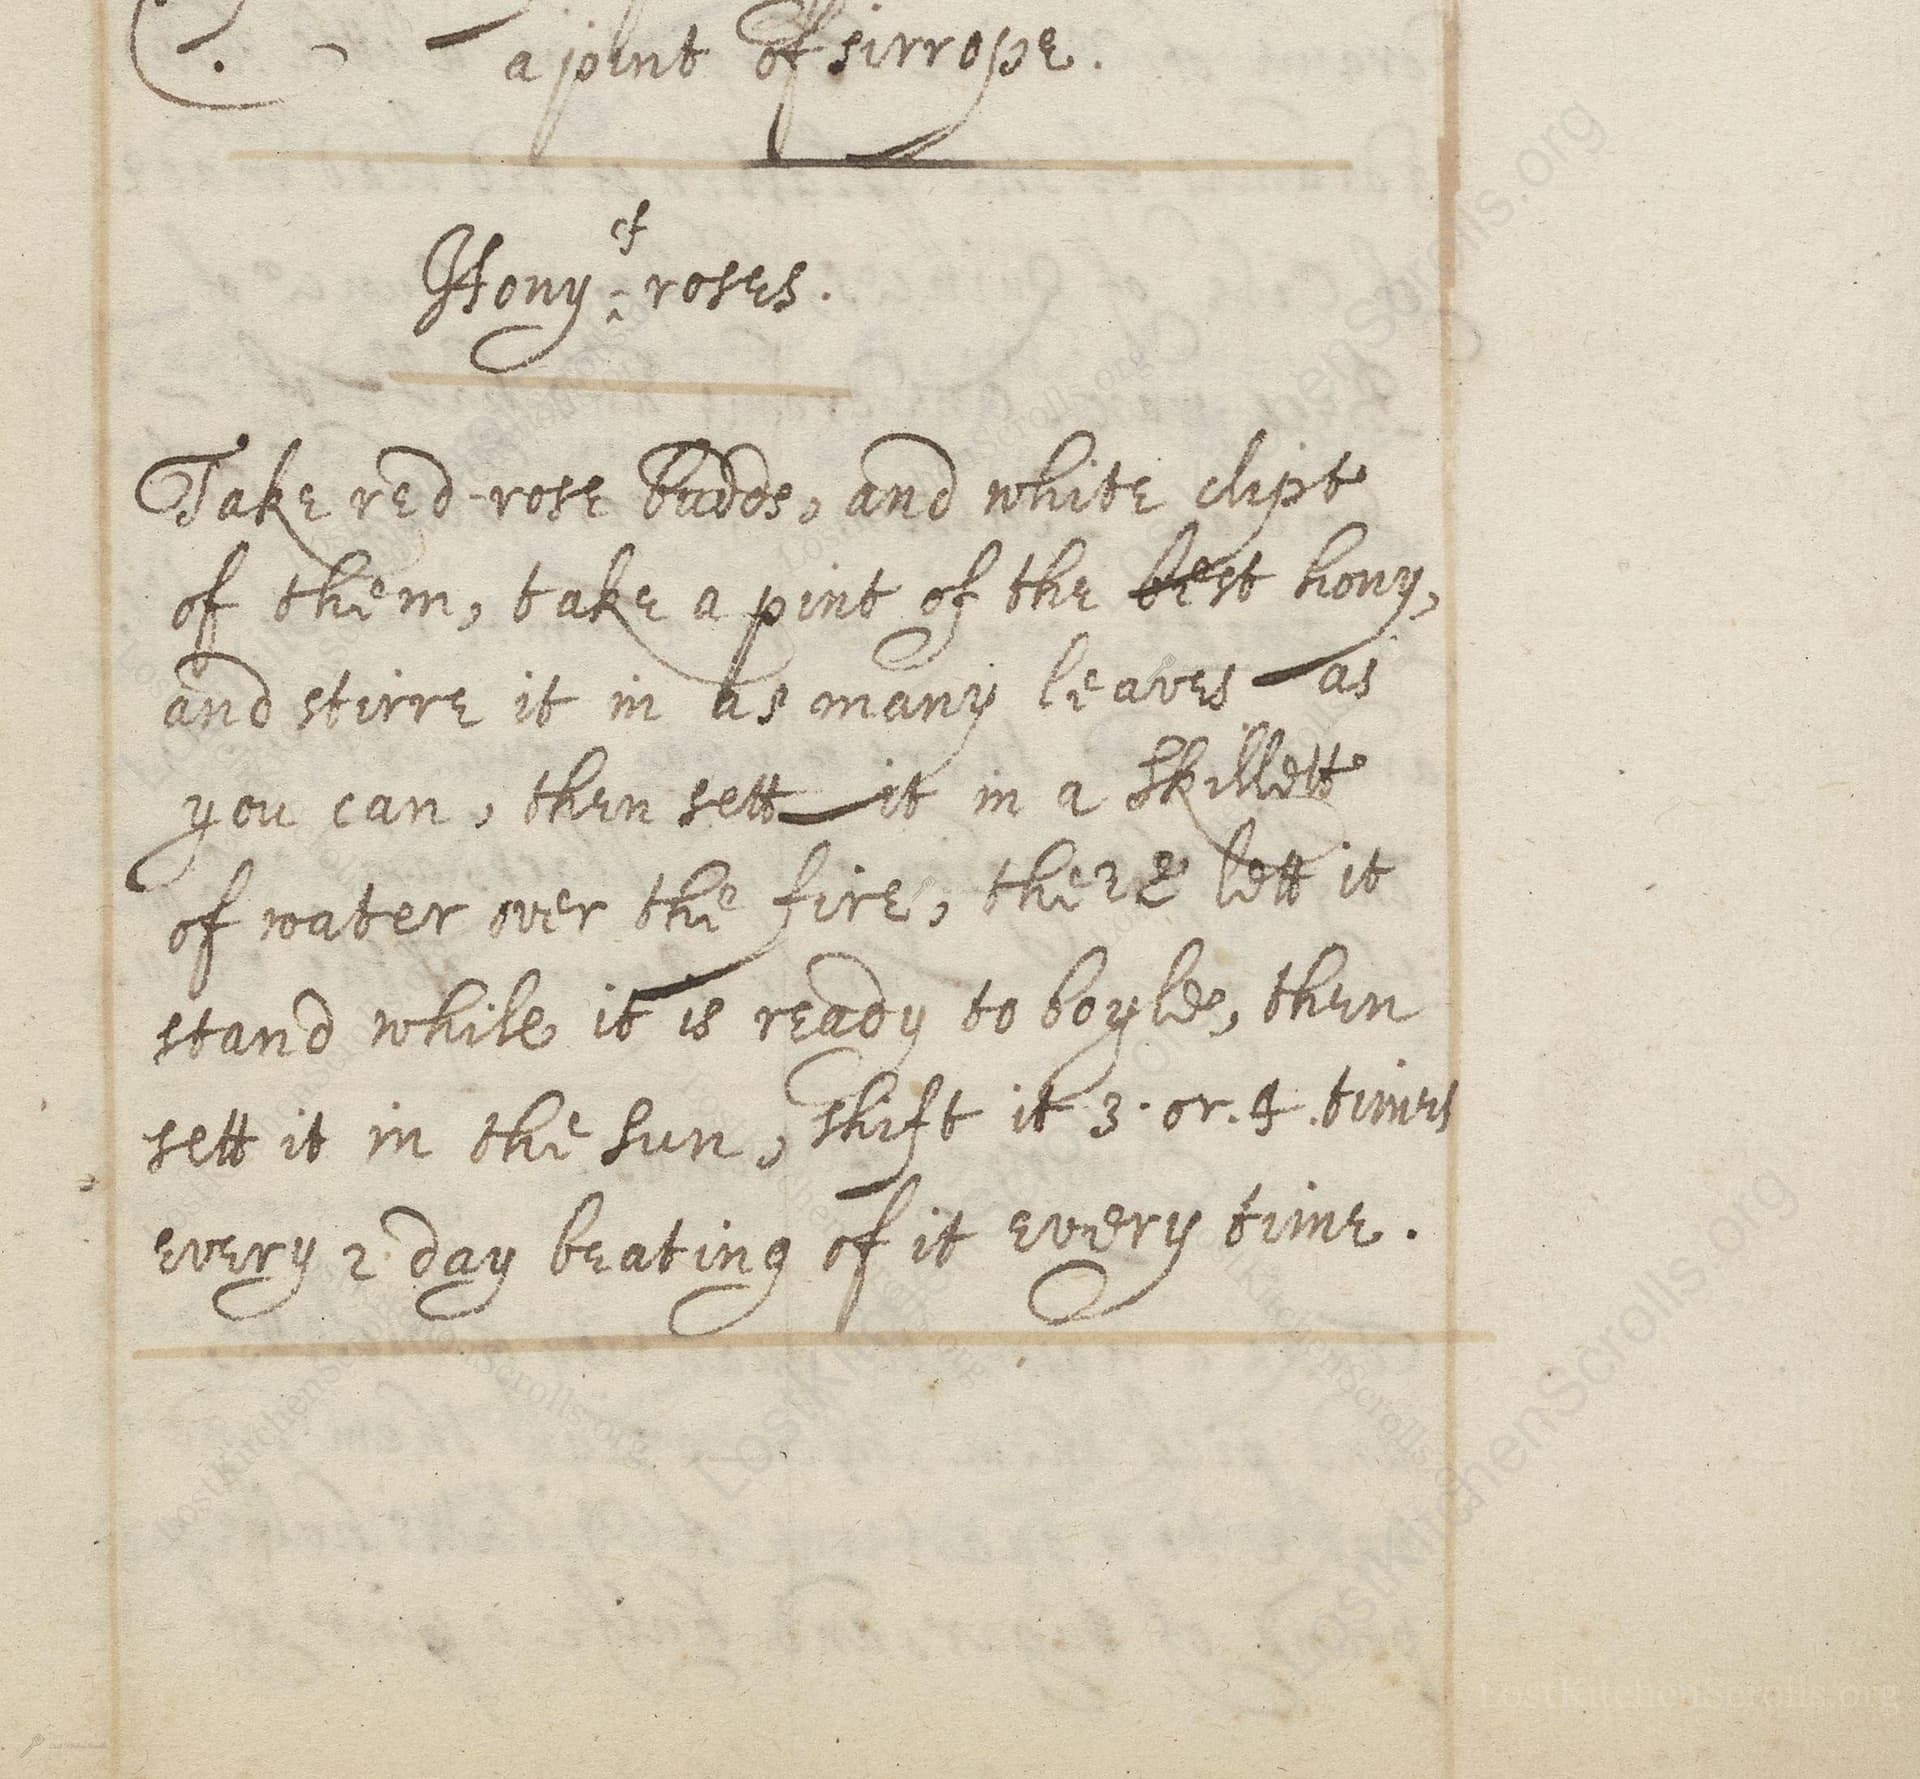 a pint of sirrope.
Hony of roses.
Take red-rose budds, and white clipt
of them, take a pint of the best hony,
and stirre it in as many leaves as
you can, then sett it in a skillett
of water over the fire, there lett it
stand while it is ready to boyle, then
sett it in the sun, shift it 3. or. 4. times
every 2 day beating of it every time.
LostKitchenScrolls.org